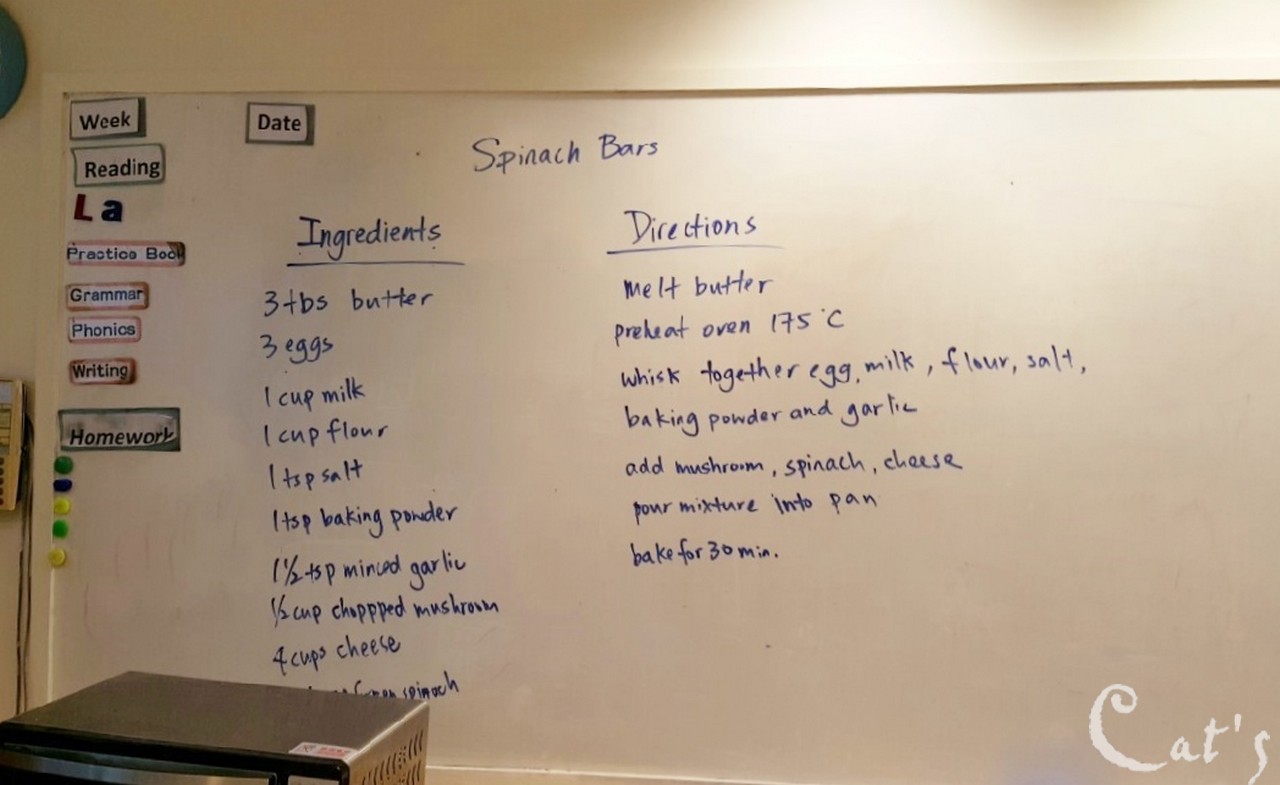 Week
Date
Reading
La
Practice Book
Grammar
Phonics
Writing
Homework
Spinach Bars
Ingredients
3 tbs butter
3 eggs
1 cup milk
1 cup flour
1 tsp salt
1 tsp baking powder
1 ½ tsp minced garlic
½ cup choppped mushroom
4 cups cheese
spinach
Directions
melt butter
preheat oven 175 °C
whisk together egg, milk, flour, salt,
baking powder and garlic
add mushroom, spinach, cheese
pour mixture into pan
bake for 30 min.
Cat's